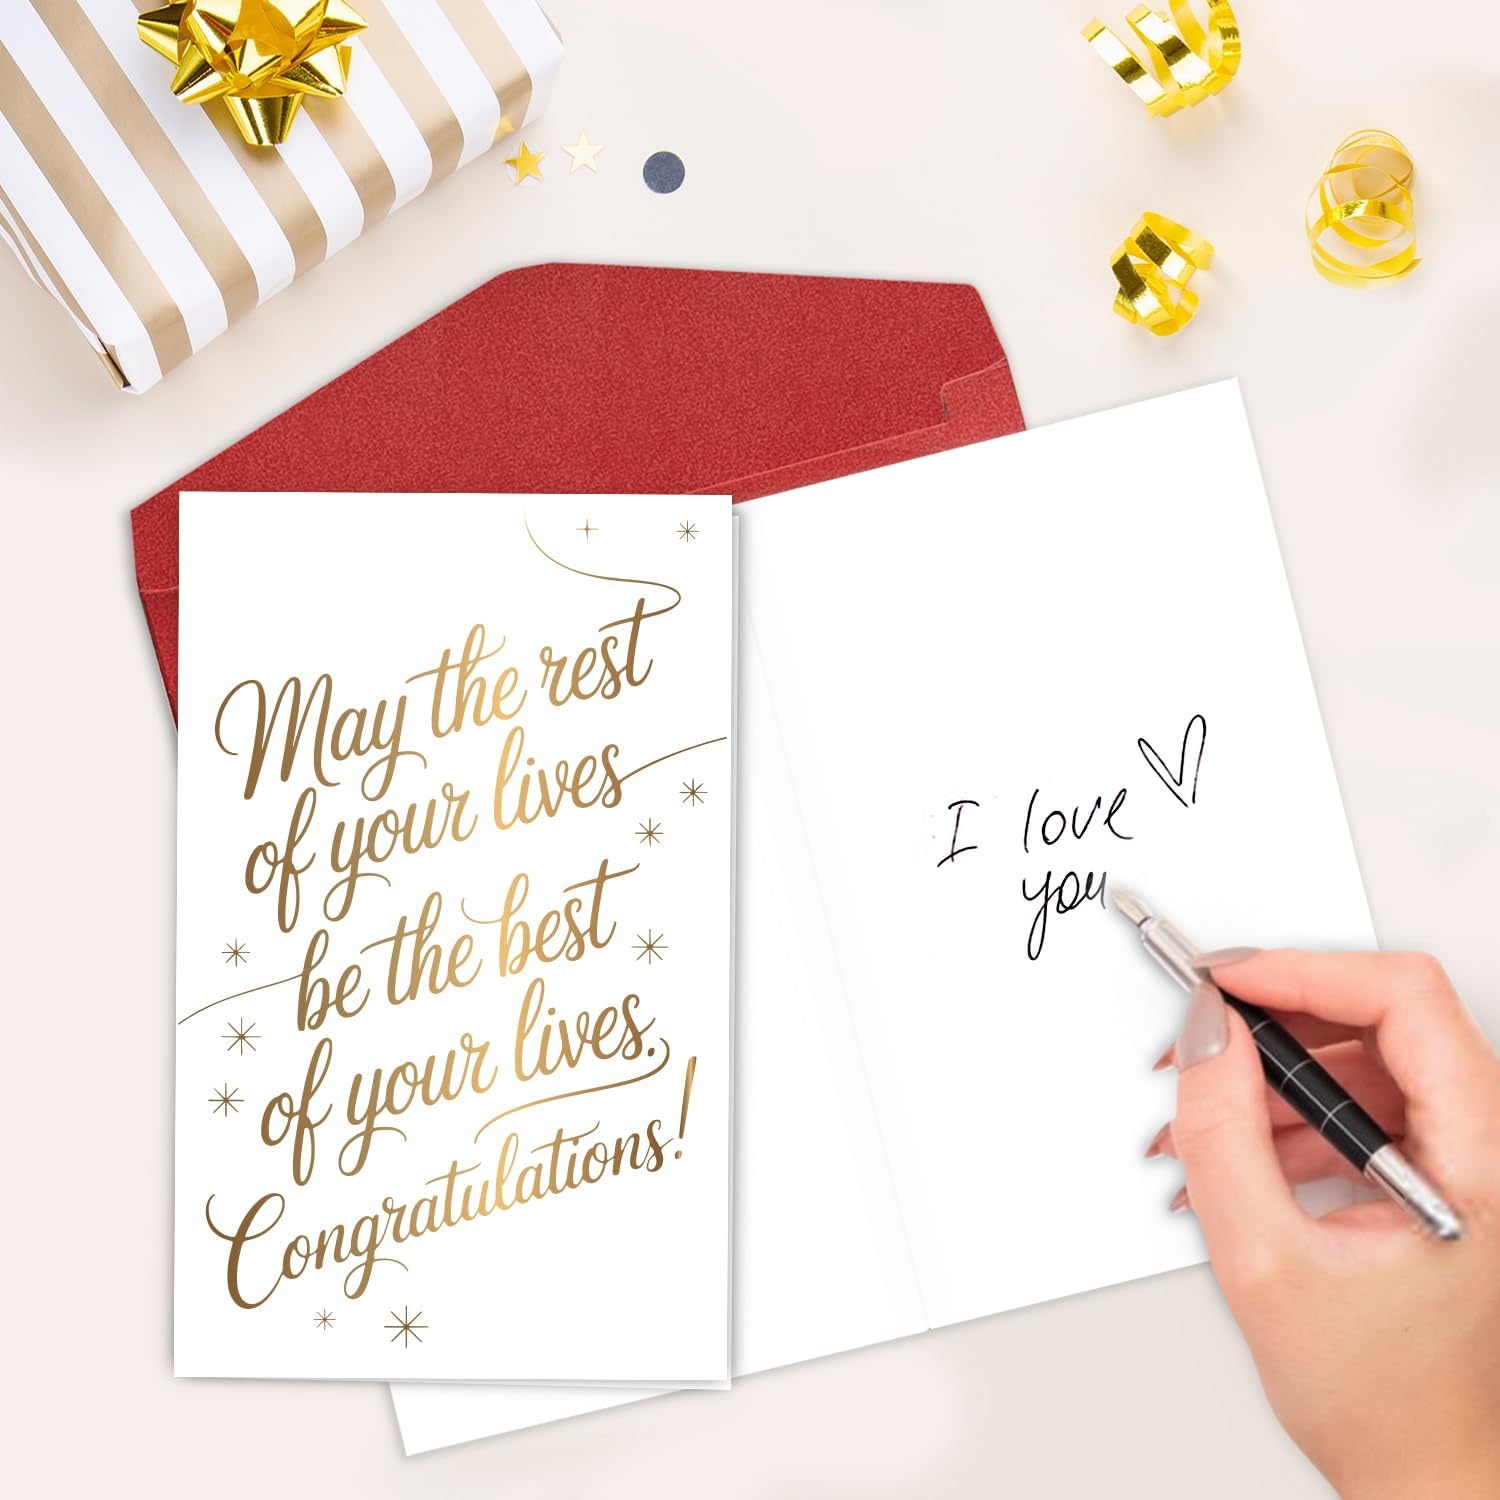 May the rest
of your lives
be the best
of your lives.
Congratulations!
I love
you